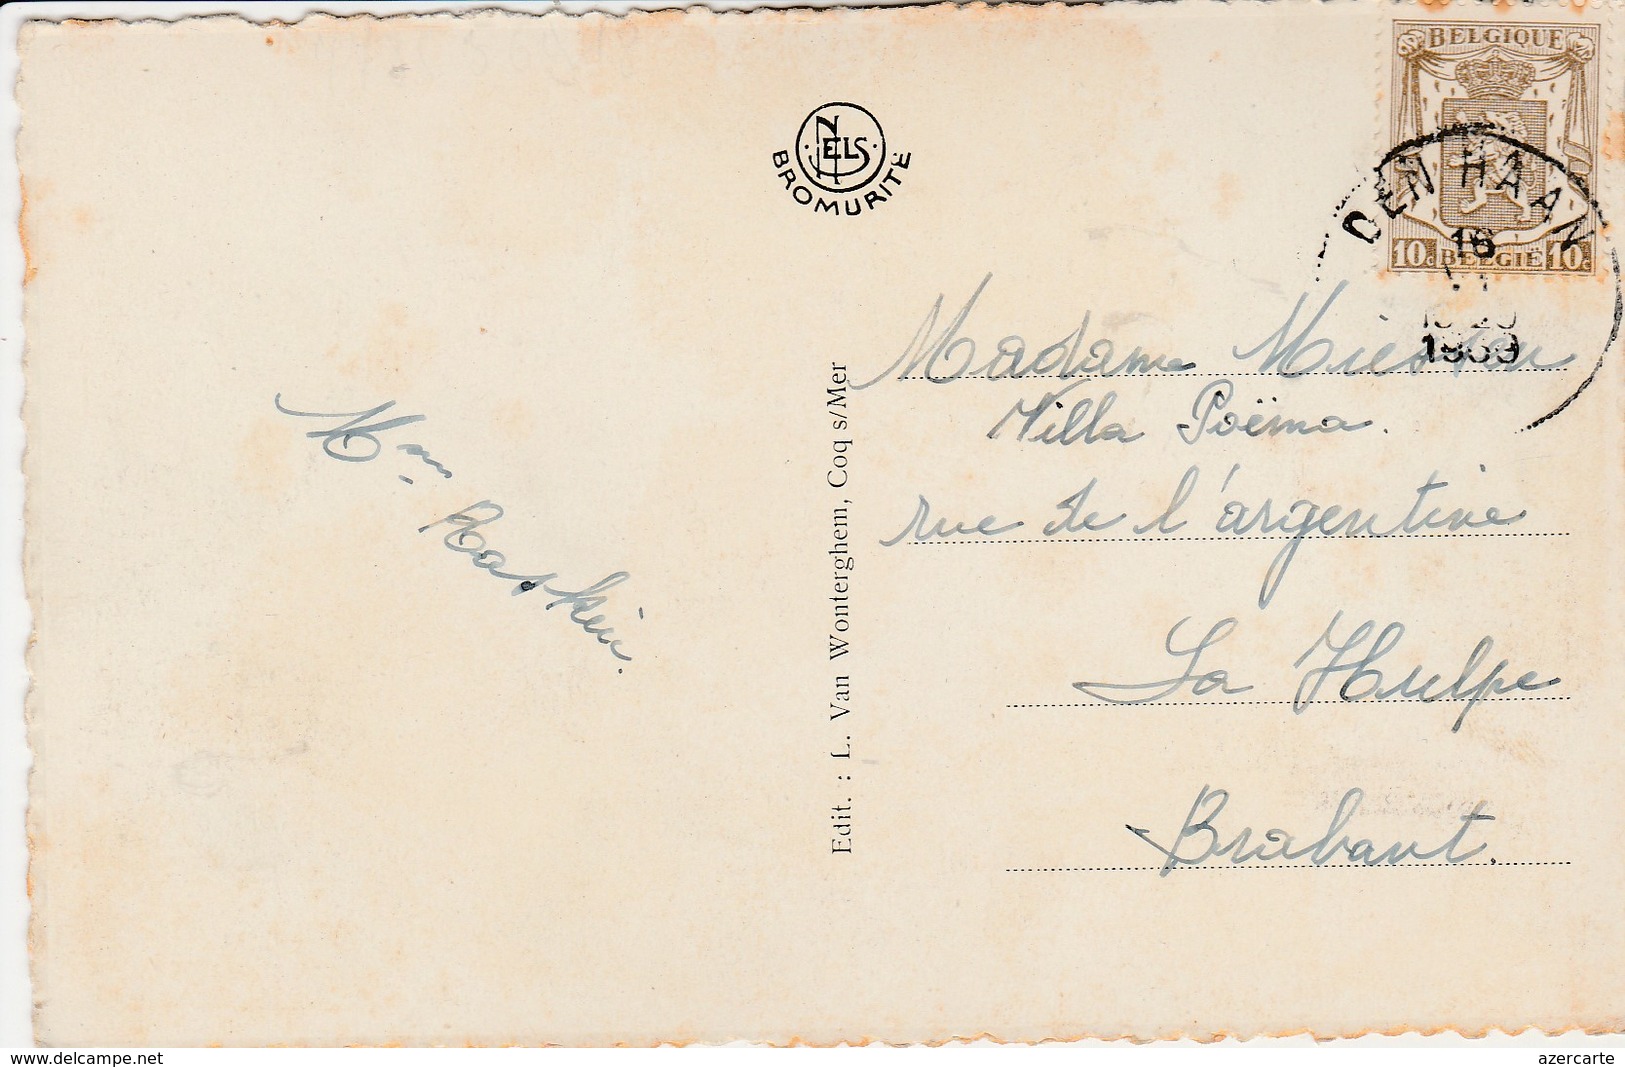 BELGIQUE
10c BELGIË 10c
DEN HAAN
16
1939
NELS
BROMURITE
Madame
Villa Poëma.
rue de l'argentine
La Hulpe
Brabant.
Mme Raskin.
Edit. : L. Van Wonterghem, Coq s/Mer
www.delcampe.net
azercarte